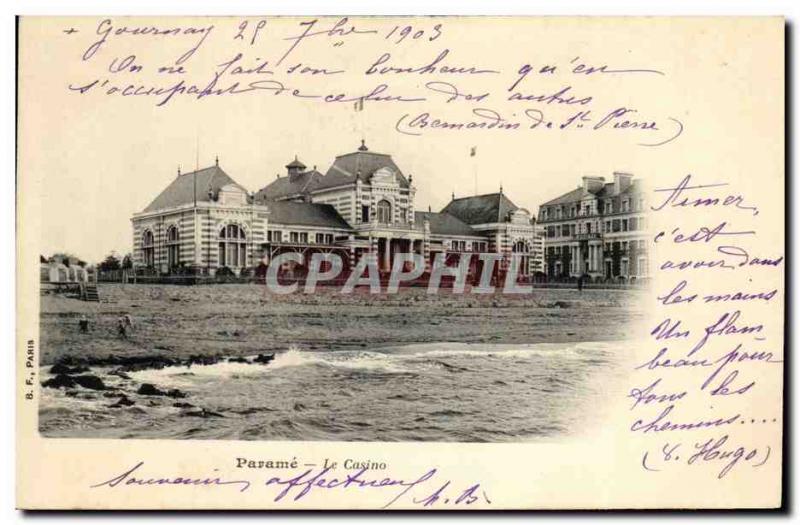 + Gournay 25 7bre 1903
On ne fait son bonheur qu'en
s'occupant de celui des autres
(Bernardin de St Pierre)
Aimer,
c'est
avoir dans
les mains
Un flam
beau pour
tous les
chemins....
(V. Hugo)
CPARAMA
B. F., PARIS
Paramé – Le Casino
Souvenir affectueux M.B.